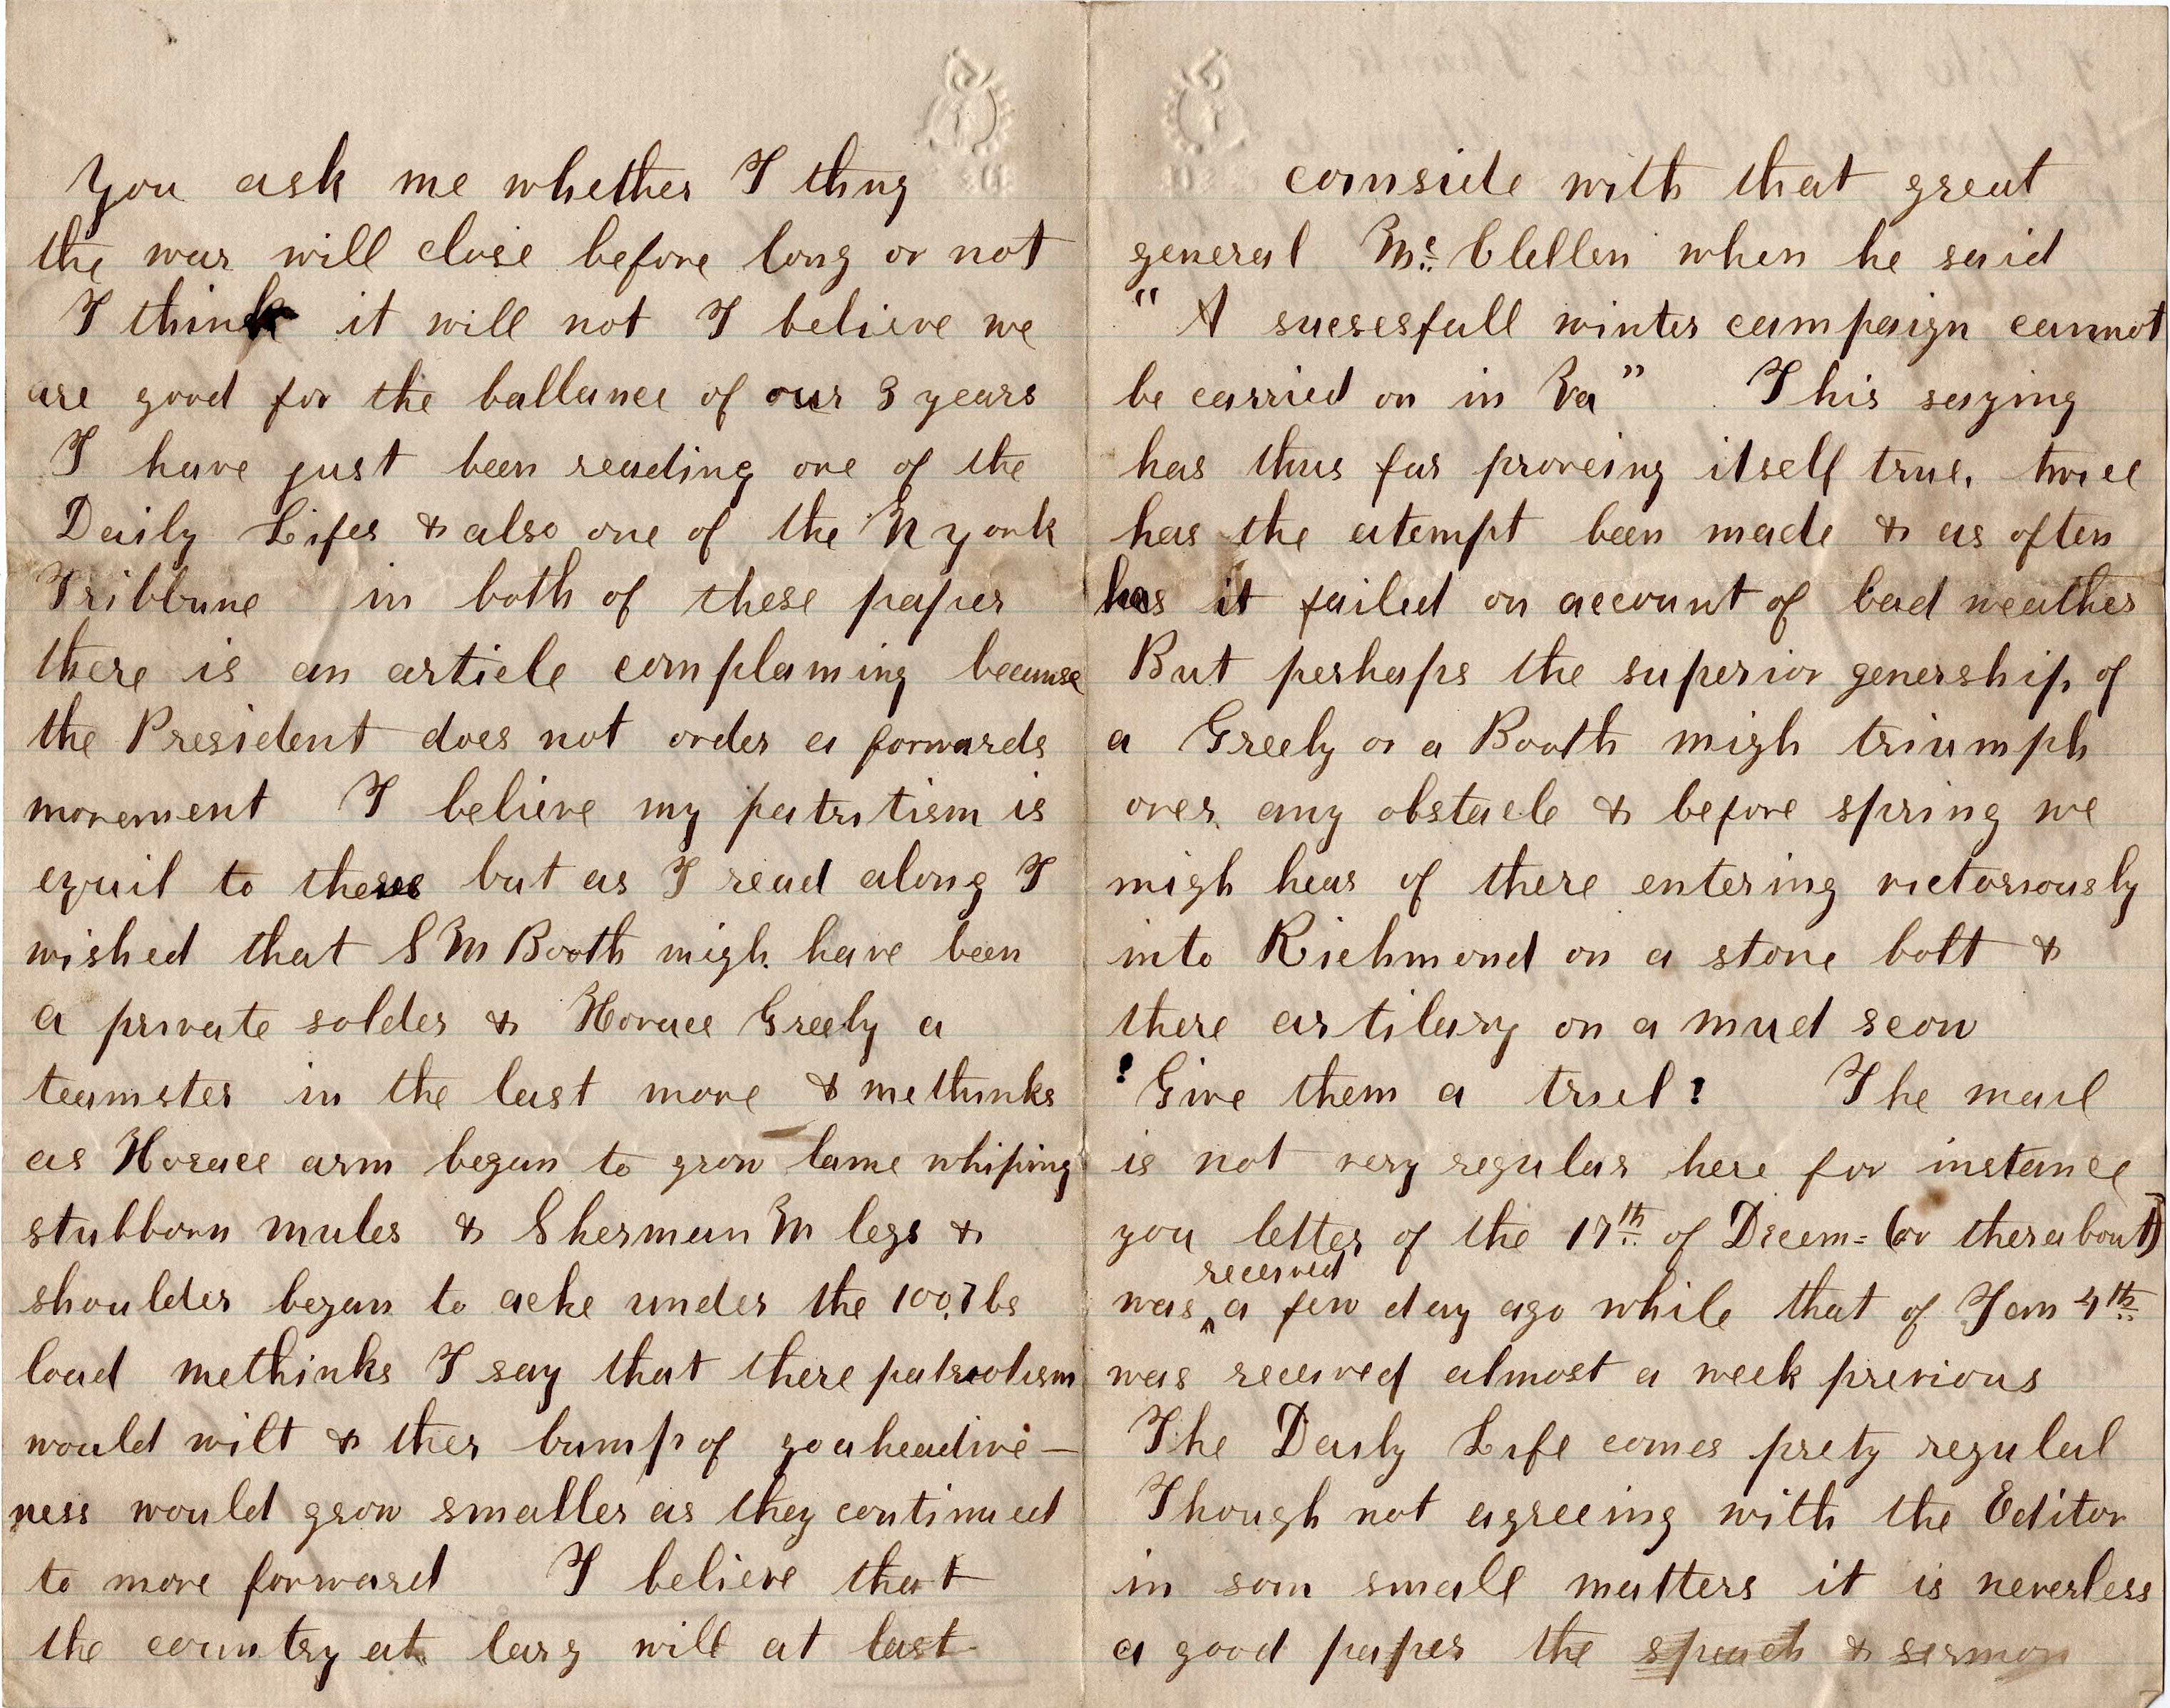 You ask me whether I thing
the war will close before long or not
I think it will not I believe we
are good for the ballance of our 3 years
I have just been reading one of the
Daily Lifes & also one of the N york
Tribbune in both of these paper
there is an article complaining because
the President does not order a forwards
movement I believe my patritism is
equil to these but as I read along I
wished that S M Booth migh have been
a private solder & Horace Greely a
teamster in the last move & methinks
as Horace arm began to grow lame whiping
stubborn mules & Sherman M legs &
shoulder began to ache under the 100 lbs
load methinks I say that there patriotism
would wilt & ther bump of goaheadive-
ness would grow smaller as they continued
to move forward I believe that
the country at larg will at last
coinside with that great
general Mc Clellen when he said
" A sucsesfull winter campaign cannot
be carried on in Va " This saying
has thus far proveing itself true, twice
has the atempt been made & as often
has it failed on account of bad weather
But perhaps the superior genership of
a Greely or a Booth migh triumph
over any obstacle & before spring we
migh hear of there entering victoriously
into Richmond on a stone bott &
there artilary on a mud scow
! Give them a trial ! The mail
is not very regular here for instance
you letter of the 17th of Dicem= (or therabout)
received
was a few day ago while that of Jan 4th
was received almost a week previous
The Daily Life comes prety regulal
Though not agreeing with the Editor
in som small matters it is neverless
a good paper the speach & sermon